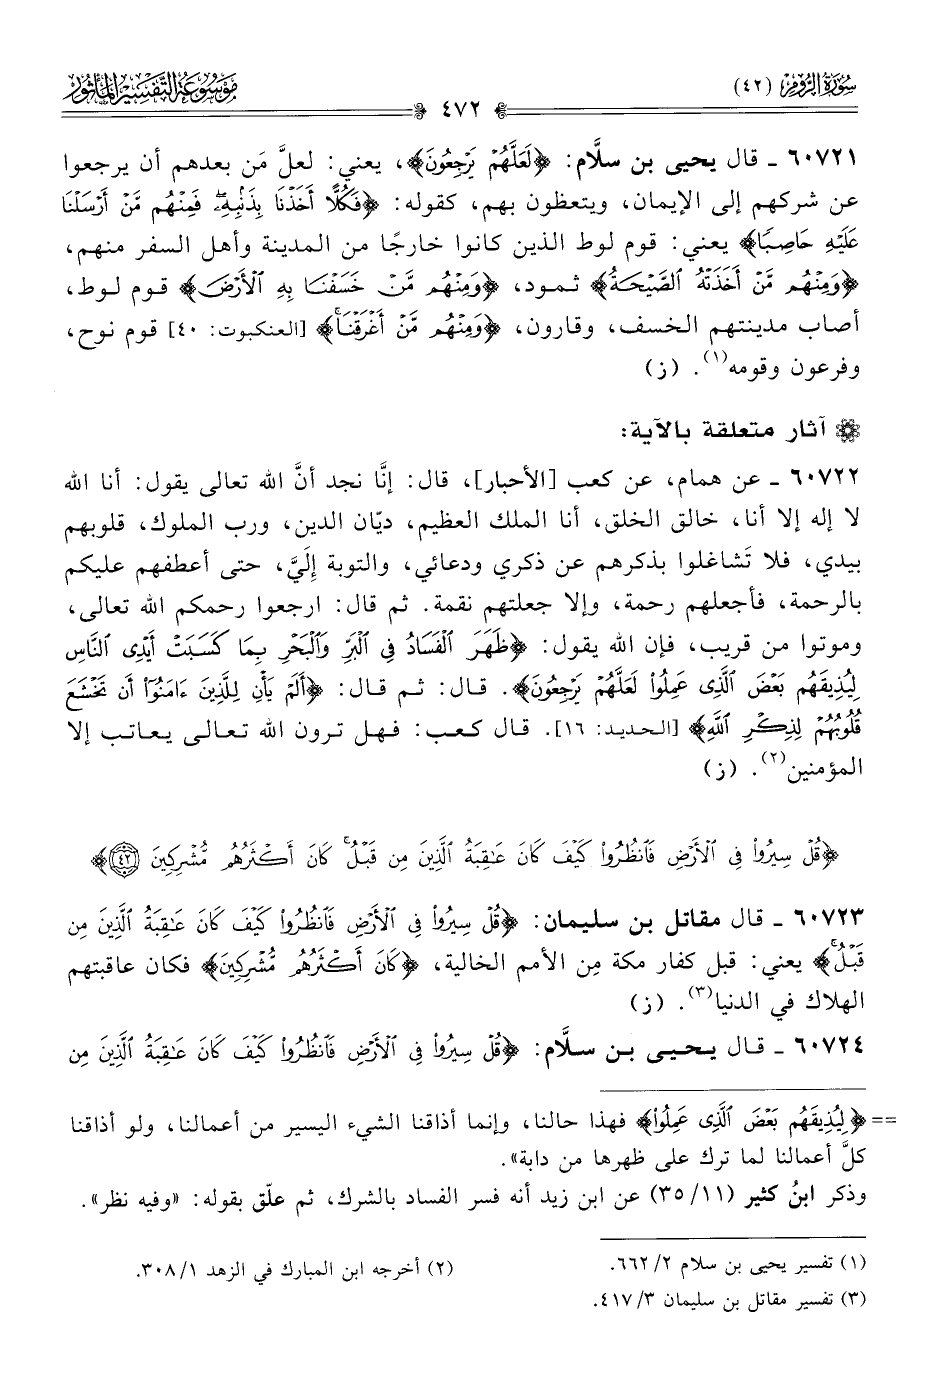 سُورَةُ الرُّومِ (٤٢)
٤٧٢
مَوْسُوعَةُ التَّفْسِيرِ المَأْثُور
٦٠٧٢١ ـ قال يحيى بن سلَّام: ﴿لَعَلَّهُمْ يَرْجِعُونَ﴾، يعني: لعلَّ مَن بعدهم أن يرجعوا
عن شركهم إلى الإيمان، ويتعظون بهم، كقوله: ﴿فَكُلًّا أَخَذْنَا بِذَنْبِهِۦ فَمِنْهُم مَّنْ أَرْسَلْنَا
عَلَيْهِ حَاصِبًا﴾ يعني: قوم لوط الذين كانوا خارجًا من المدينة وأهل السفر منهم،
﴿وَمِنْهُم مَّنْ أَخَذَتْهُ ٱلصَّيْحَةُ﴾ ثمود، ﴿وَمِنْهُم مَّنْ خَسَفْنَا بِهِ ٱلْأَرْضَ﴾ قوم لوط،
أصاب مدينتهم الخسف، وقارون، ﴿وَمِنْهُم مَّنْ أَغْرَقْنَا﴾ [العنكبوت: ٤٠] قوم نوح،
وفرعون وقومه(١). (ز)
آثار متعلقة بالآية:
٦٠٧٢٢ ـ عن همام، عن كعب [الأحبار]، قال: إنَّا نجد أنَّ الله تعالى يقول: أنا الله
لا إله إلا أنا، خالق الخلق، أنا الملك العظيم، ديّان الدين، ورب الملوك، قلوبهم
بيدي، فلا تَشاغلوا بذكرهم عن ذكري ودعائي، والتوبة إلَيَّ، حتى أعطفهم عليكم
بالرحمة، فأجعلهم رحمة، وإلا جعلتهم نقمة. ثم قال: ارجعوا رحمكم الله تعالى،
وموتوا من قريب، فإن الله يقول: ﴿ظَهَرَ ٱلْفَسَادُ فِى ٱلْبَرِّ وَٱلْبَحْرِ بِمَا كَسَبَتْ أَيْدِى ٱلنَّاسِ
لِيُذِيقَهُم بَعْضَ ٱلَّذِى عَمِلُوا۟ لَعَلَّهُمْ يَرْجِعُونَ﴾. قال: ثم قال: ﴿أَلَمْ يَأْنِ لِلَّذِينَ ءَامَنُوٓا۟ أَن تَخْشَعَ
قُلُوبُهُمْ لِذِكْرِ ٱللَّهِ﴾ [الحديد: ١٦]. قال كعب: فهل ترون الله تعالى يعاتب إلا
المؤمنين(٢). (ز)
﴿قُلْ سِيرُوا۟ فِى ٱلْأَرْضِ فَٱنظُرُوا۟ كَيْفَ كَانَ عَٰقِبَةُ ٱلَّذِينَ مِن قَبْلُ ۚ كَانَ أَكْثَرُهُم مُّشْرِكِينَ ٤٢﴾
٦٠٧٢٣ ـ قال مقاتل بن سليمان: ﴿قُلْ سِيرُوا۟ فِى ٱلْأَرْضِ فَٱنظُرُوا۟ كَيْفَ كَانَ عَٰقِبَةُ ٱلَّذِينَ مِن
قَبْلُ ۚ﴾ يعني: قبل كفار مكة مِن الأمم الخالية، ﴿كَانَ أَكْثَرُهُم مُّشْرِكِينَ﴾ فكان عاقبتهم
الهلاك في الدنيا(٣). (ز)
٦٠٧٢٤ ـ قال يحيى بن سلَّام: ﴿قُلْ سِيرُوا۟ فِى ٱلْأَرْضِ فَٱنظُرُوا۟ كَيْفَ كَانَ عَٰقِبَةُ ٱلَّذِينَ مِن
== ﴿لِيُذِيقَهُم بَعْضَ ٱلَّذِى عَمِلُوا۟﴾ فهذا حالنا، وإنما أذاقنا الشيء اليسير من أعمالنا، ولو أذاقنا
كلَّ أعمالنا لما ترك على ظهرها من دابة».
وذكر ابنُ كثير (١١/ ٣٥) عن ابن زيد أنه فسر الفساد بالشرك، ثم علّق بقوله: «وفيه نظر».
(١) تفسير يحيى بن سلام ٢/ ٦٦٢.
(٢) أخرجه ابن المبارك في الزهد ١/ ٣٠٨.
(٣) تفسير مقاتل بن سليمان ٣/ ٤١٧.